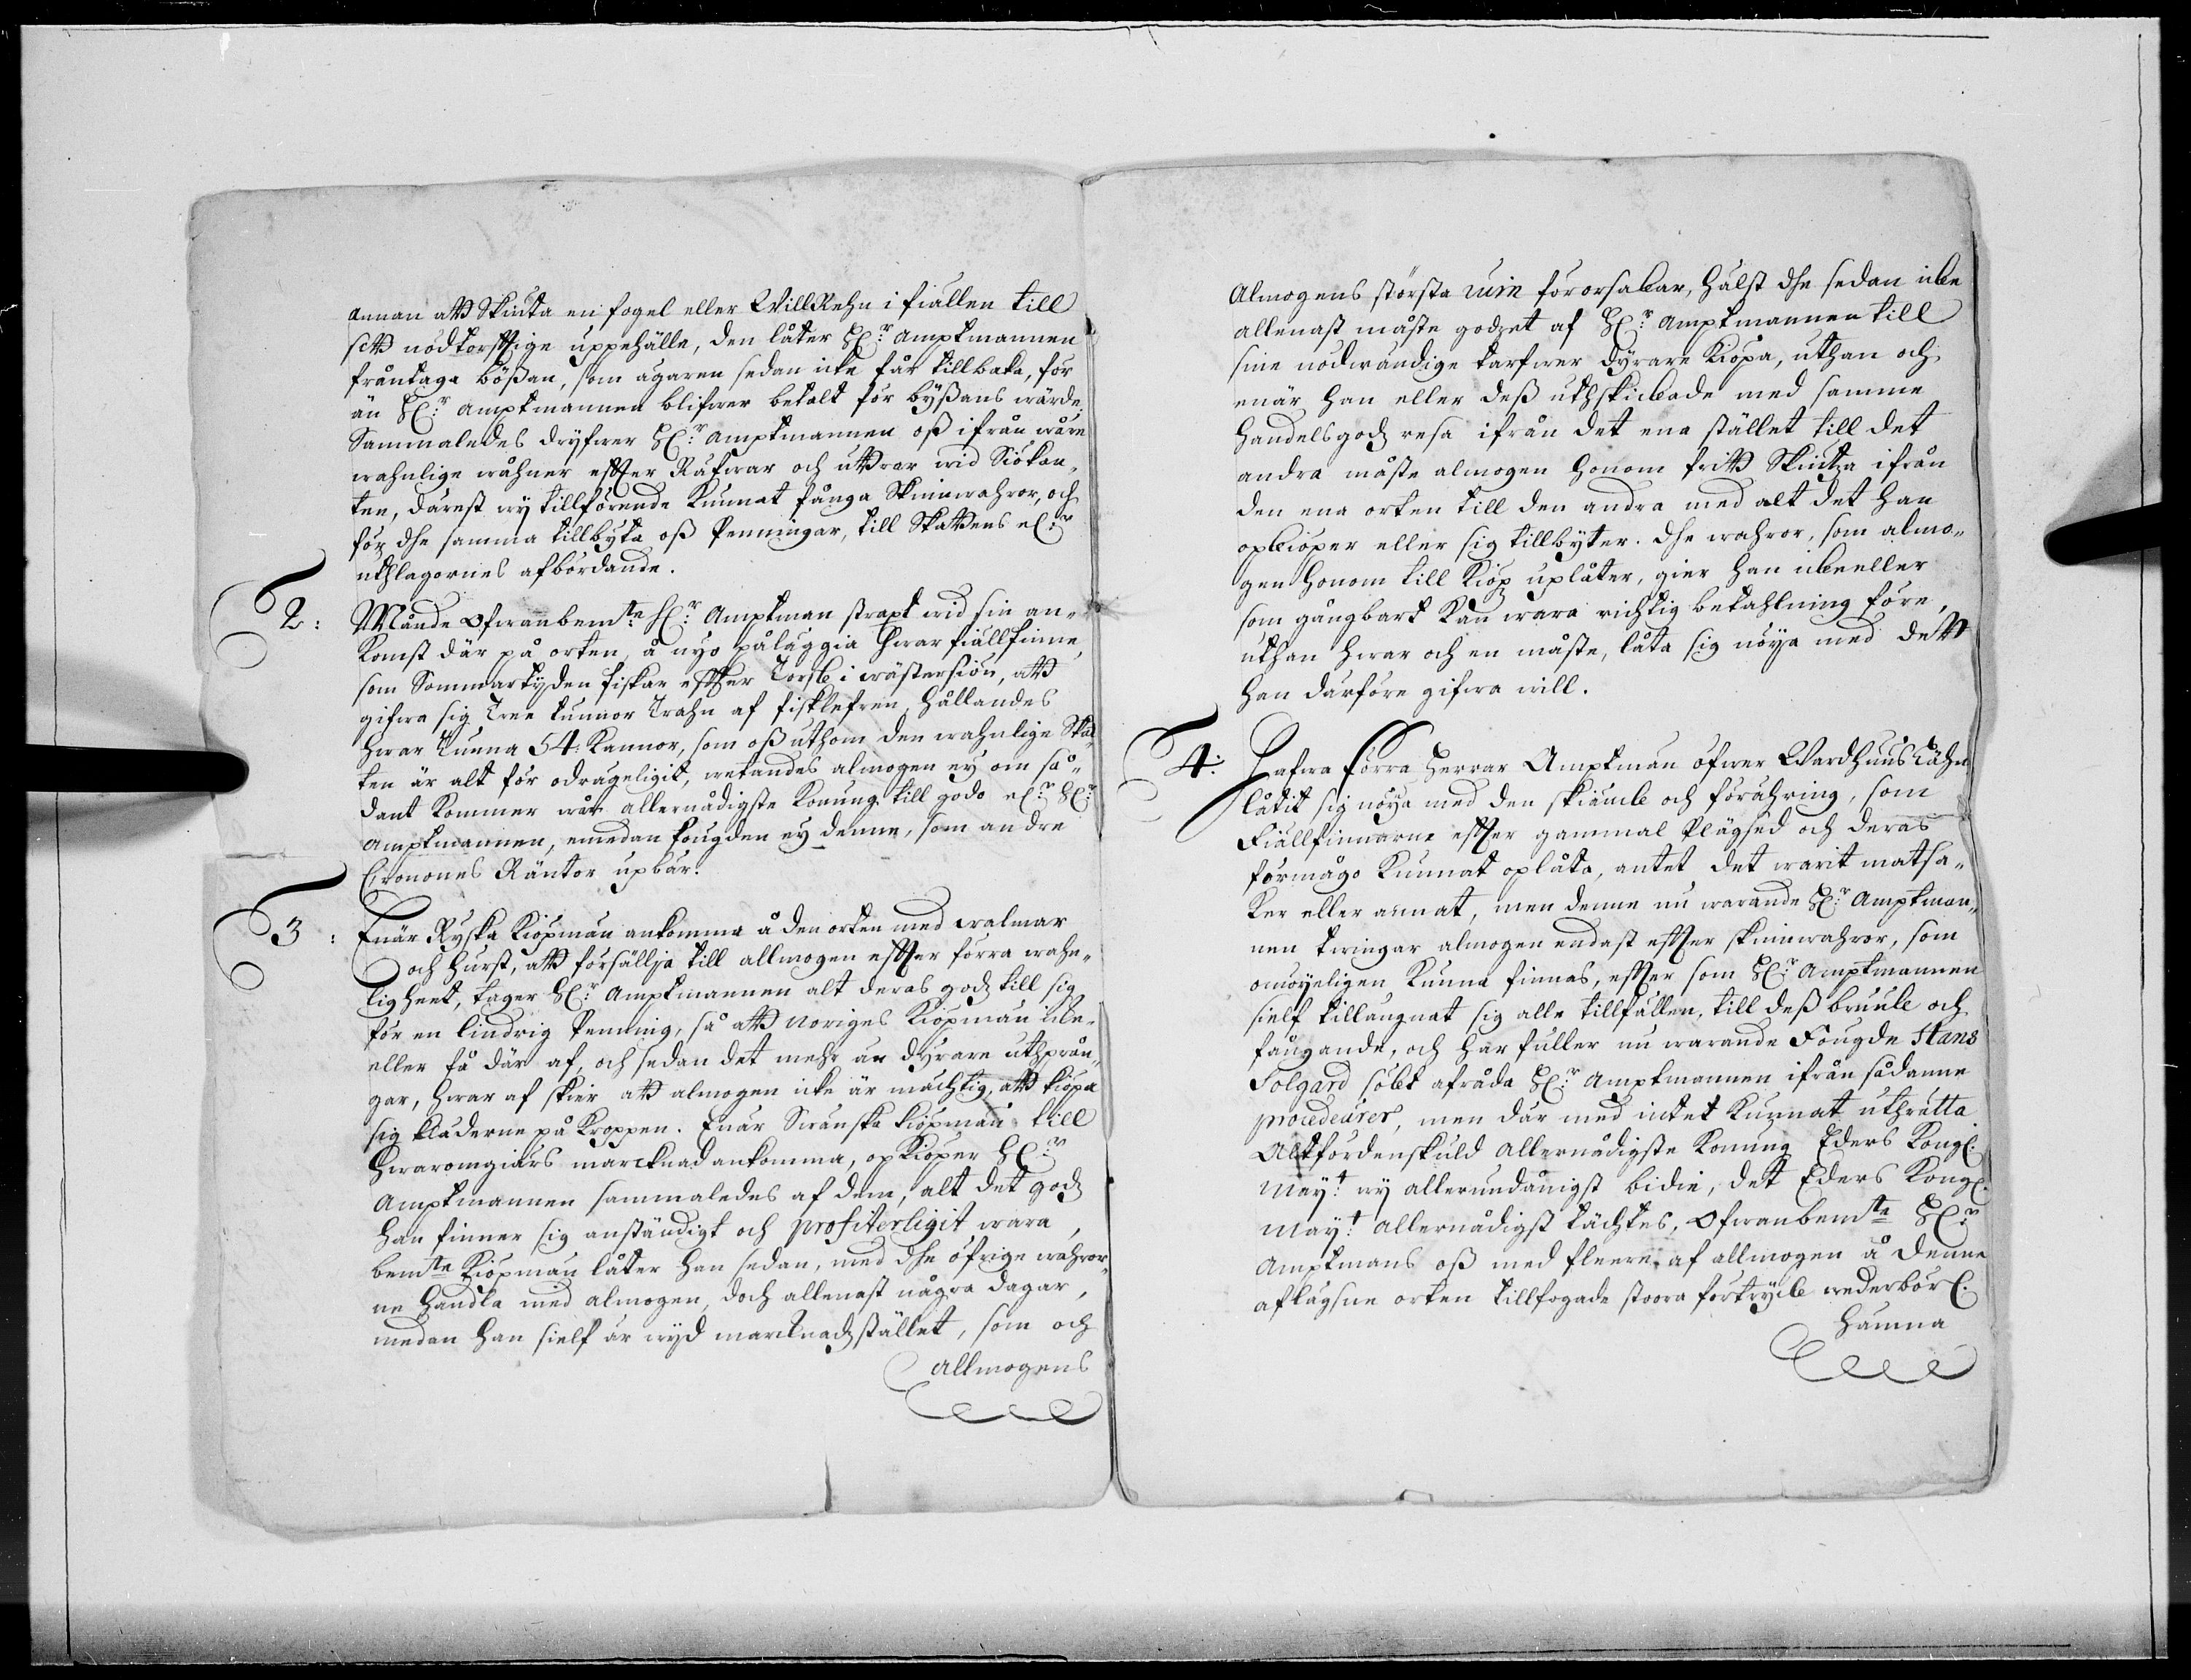 annan att skiuta en fogel eller WillRehn i fiällen till
sitt nödtorfftige uppehälle, den låter H:r Amptmannen
fråntaga bößan, som ägaren sedan icke får tillbaka, för
än H:r Amptmannen blifwer betalt för byßans wärde:
Sammaledes dryfwer H:r Amptmannen oß ifrån wåre
wahnlige wåhner effter Räfwar och uttrar wid Siökan-
ten, därest wy tillförende kunnat fånga skinnwahror, och
för dhe samma tillbyta oß Penningar, till Skattens el:r
uthlagornes afbördande.
2: Månde Ofwannbem:te H:r Amptman straxt wid sin an-
komst där på orten, å nyo påläggia hwar fiällfinne,
som Sommartyden fiskar effter Torsk i wästersiön, att
gifwa sig Tree tunnor Trahn af fisklefren, hållandes
hwar Tunna 54: Kannor, som oß uthom den wahnlige Skat-
ten är alt för odrageligit, wetandes almogen ey om så-
dant kommer wår allernådigste Konung till godo el:r H:r
Amptmannen, emedan fougden ey denne, som andre
Cronones Räntor upbär.
3: Enär Ryska Kiöpmän ankomma å den orten med walmar
och hurst, att försällja till allmogen effter förra wahn-
ligheet, tager H:r Amptmannen alt deras godz till sig
för en lindrig Penning, så att Noriges Kiöpmän icke
eller få där af, och sedan det mehr än dyrare uthprån-
gar, hwar af skier att almogen icke är mächtig, att kiöpa
sig kläderne på kroppen. Enär Swänska kiöpmän till
hwaromgiärs marcknad ankomma, opkiöper H:r
Amptmannen sammaledes af dem, alt det godz
han finner sig anständigt och profiterligit wara,
bem:te Kiöpmän låter han sedan, med dhe öfrige wahror-
ne handla med almogen, doch allenast några dagar,
medan han sielf är wyd marcknadzstället, som och
Allmogens
Almogens största ruin förorsakar, hälst dhe sedan icke
allenast måste godzet af H:r Amptmannen till
sine nödwändige tarfwer dyrare kiöpa, uthan och
enär han eller deß uthskickade med samme
handelsgodz resa ifrån det ena stället till det
andra måste almogen honom fritt skiutza ifrån
den ena orten till den andra med alt det han
opkiöper eller sig tillbyter. dhe wahror, som almo-
gen honom till kiöp uplåter, gier han icke eller
som gångbart kan wara richtig betahlning före,
uthan hwar och en måste, låta sig nöya med dett
han därföre gifwa will.
4: Hafwa förra Herrar Amptmän öfwer Wardhuus Lähn
låtit sig nöya med den skiänck och förähring, som
Fiällfinnarne effter gammal plägsed och deras
förmågo kunnat oplåta, antet det warit matsa-
ker eller annat, men denne nu warande H:r Amptman-
nen twingar almogen endast effter skinnwahror, som
omöyeligen kunna finnas, effter som H:r Amptmannen
sielf tillängnat sig alle tillfällen, till deß bruuk och
fängande, och har fuller nu warande Fougde Hans
Solgard sökt afråda H:r Amptmannen ifrån sådanne
procedeurer, men där med intet kunnat uthrätta
Altfördenskuld Allernådigste Konung Eders Kongl.
May:t wy allerundånigst bidie, det Eders Kongl.
May:t allernådigst täcktes, Ofwanbem:te H:r
Amptmans oß med fleere af allmogen å denne
aflägsne orten tillfogade stoora förtryck wederbörl.
hämna